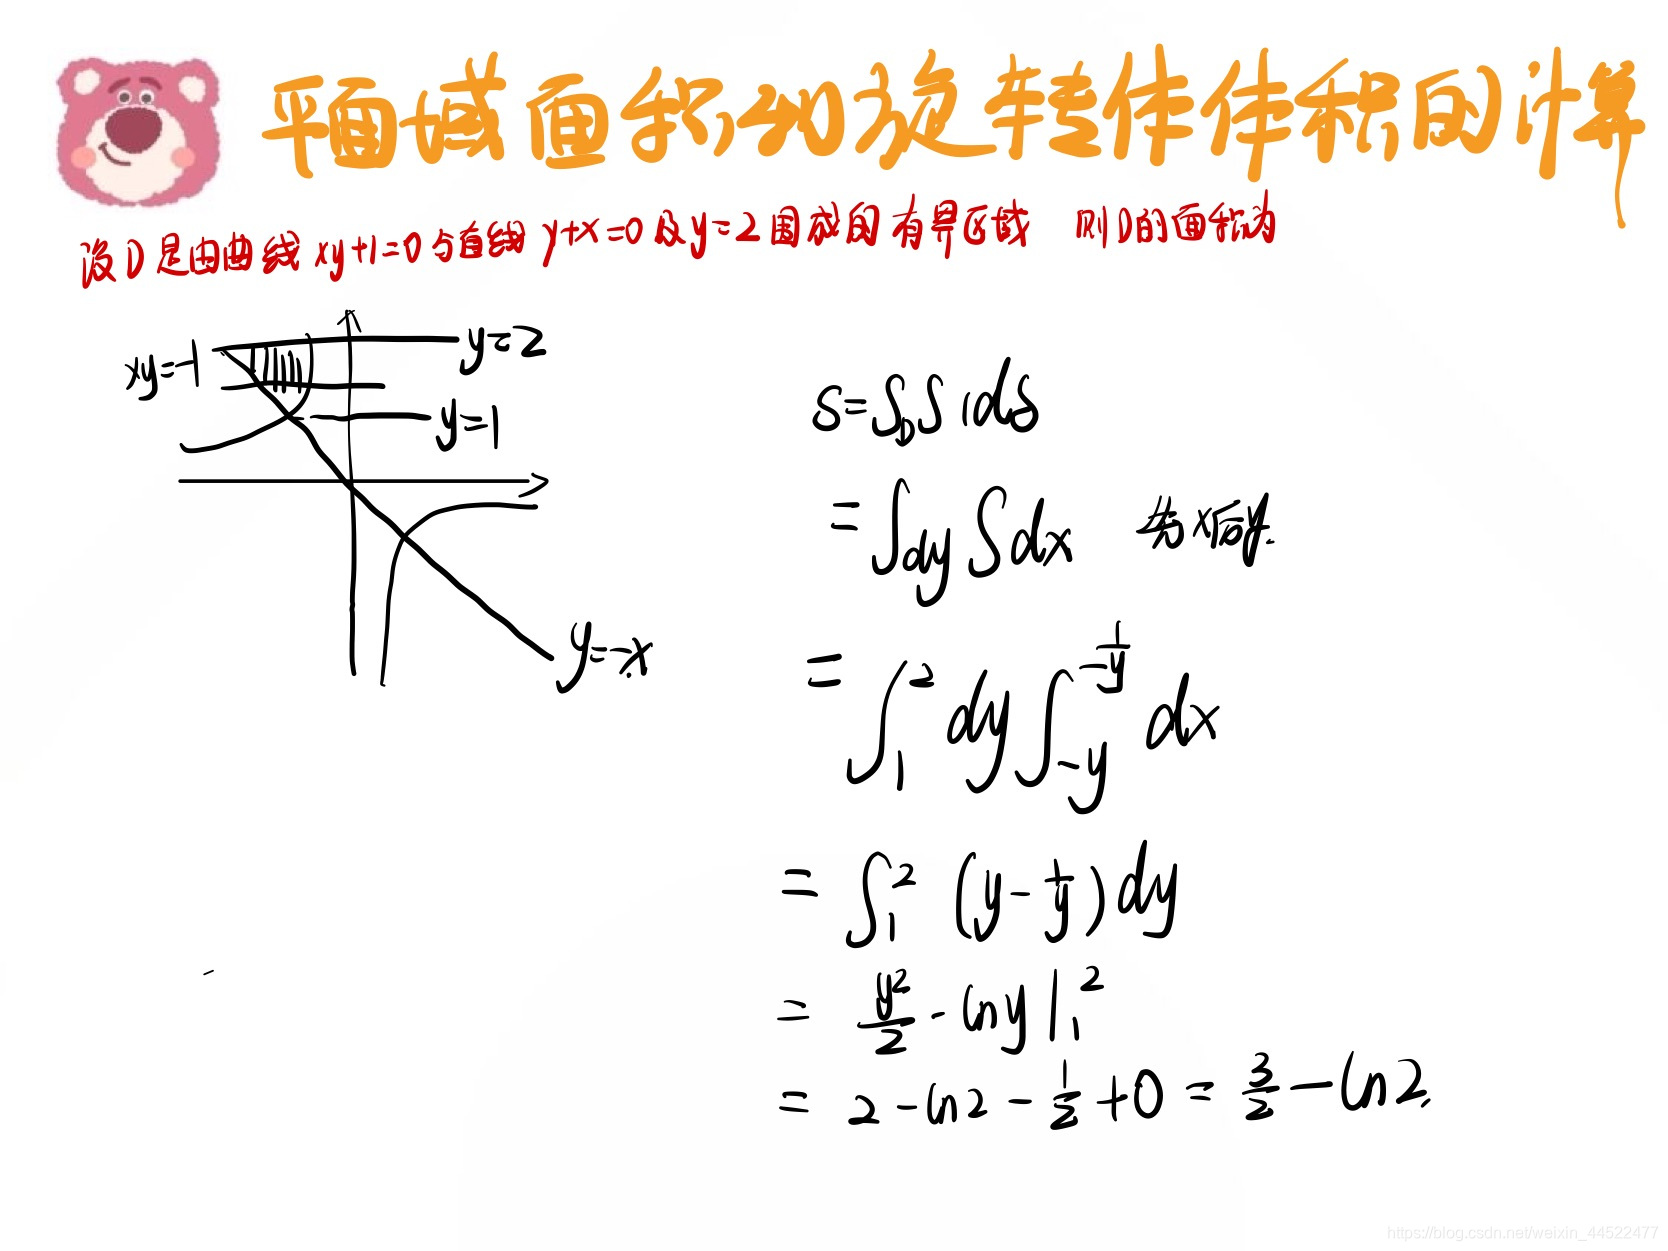 平面域面积和旋转体体积的计算
设D是由曲线 xy+1=0与直线 y+x=0及y=2围成的有界区域 则D的面积为
y=2
xy=-1
y=1
y=-x
S=∫∫_D 1dδ
=∫dy∫dx 先x后y.
=∫_1^2 dy∫_{-y}^{-1/y} dx
=∫_1^2 (y-1/y)dy
= y²/2 - lny |_1^2
= 2-ln2-1/2+0 = 3/2-ln2,
https://blog.csdn.net/weixin_44522477